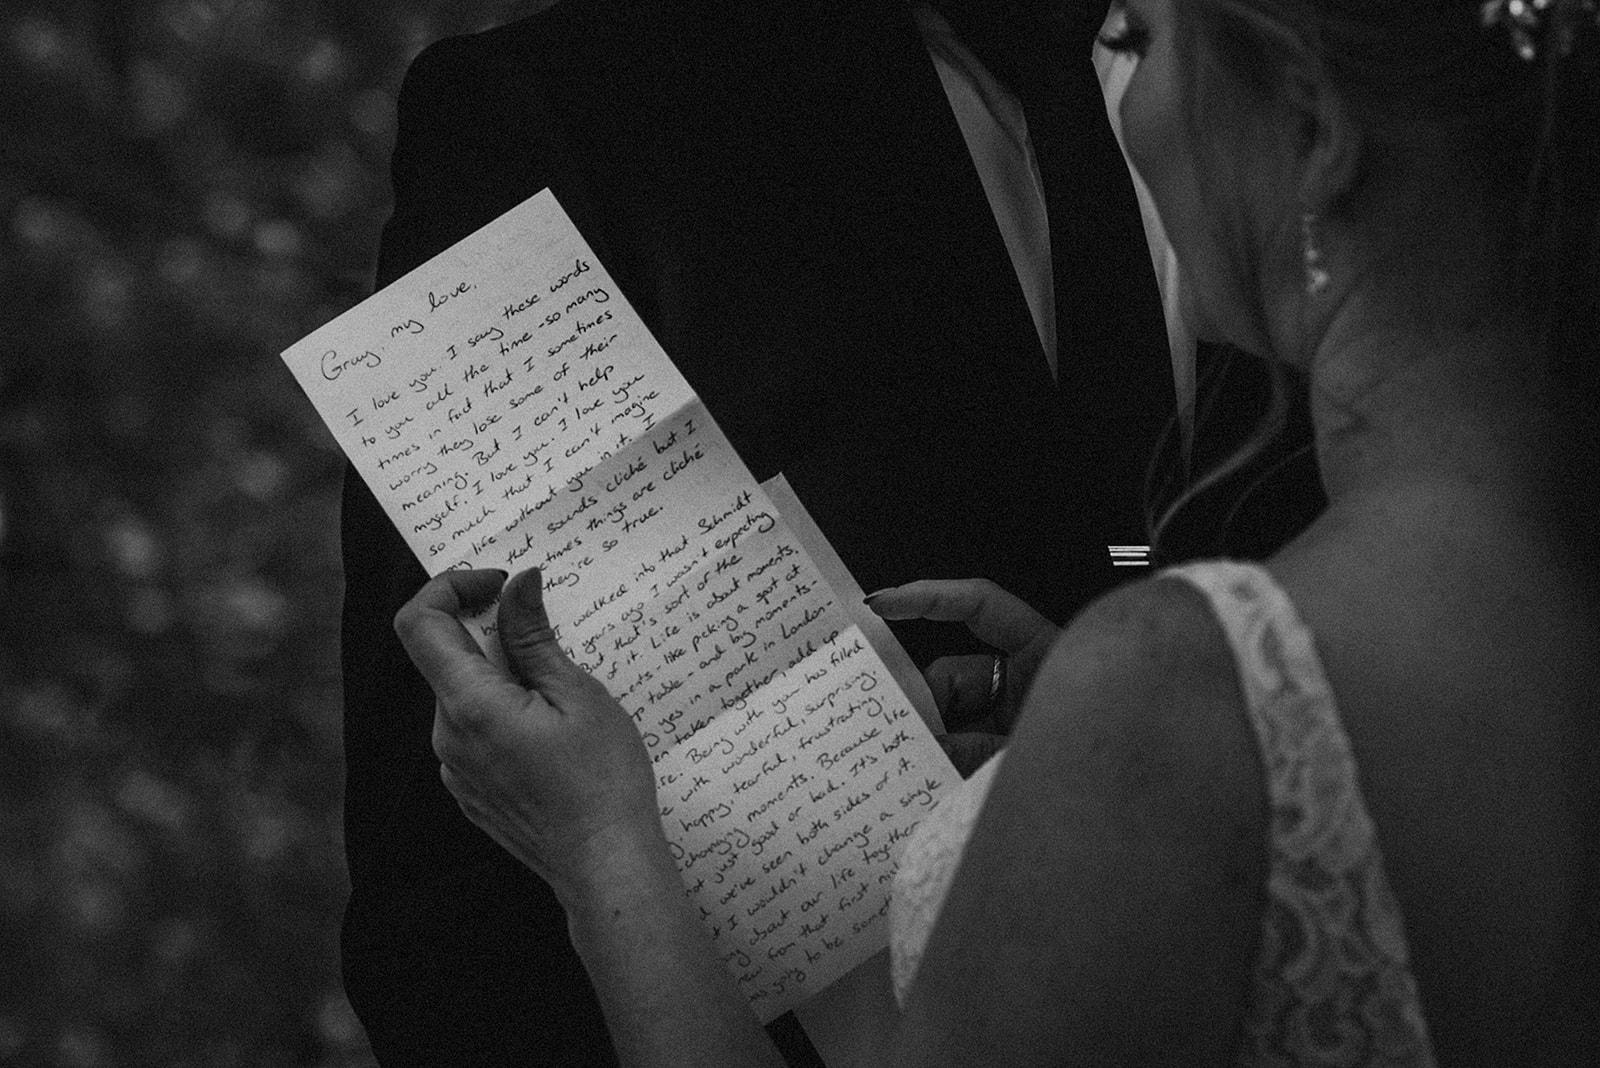 Gray, my love,
I love you. I say these words
to you all the time - so many
times in fact that I sometimes
worry they lose some of their
meaning. But I can't help
myself. I love you. I love you
so much that I can't imagine
my life without you in it. I
that sounds cliché but I
things are cliché
they're so true.
I walked into that Schmidt
9 years ago I wasn't expecting
But that's sort of the
of it. Life is about moments.
- like picking a spot at
table - and big moments -
yes in a park in London -
taken together, add up
Being with you has filled
with wonderful, surprising,
happy, tearful, frustrating,
changing moments. Because life
not just good or bad. It's both
we've seen both sides of it.
I wouldn't change a single
about our life together
from that first
going to be